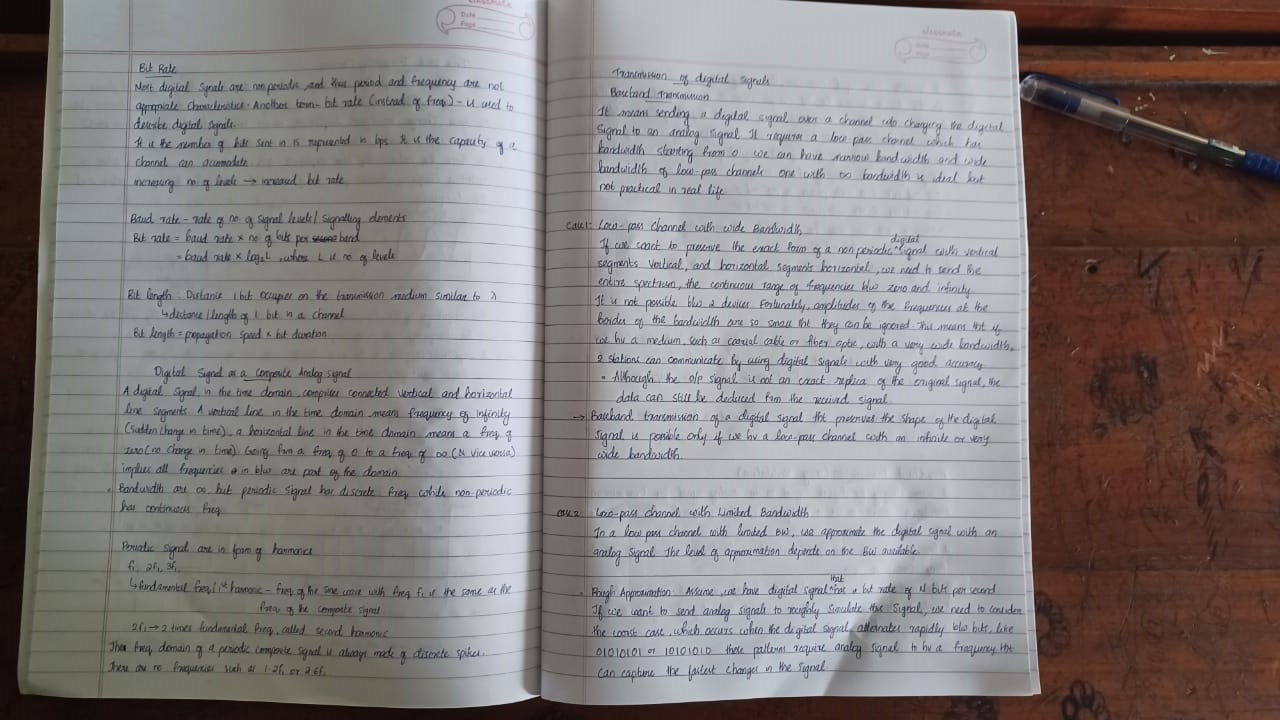 classmate
Date
Page
Bit Rate
Most digital signals are nonperiodic, and thus period and frequency are not
appropriate characteristics. Another term - bit rate (instead of freq) - is used to
describe digital signals.
It is the number of bits sent in 1s represented in bps. It is the capacity of a
channel can accomodate
increasing no. of levels → increased bit rate
Baud rate - rate of no. of signal levels / signalling elements
Bit rate = baud rate × no of bits per band
= baud rate × log₂L , where L is no. of levels
Bit length : Distance 1 bit occupies on the transmission medium similar to λ
↳ distance / length of 1 bit in a channel
Bit length = propagation speed × bit duration
Digital Signal as a Composite Analog signal
A digital signal, in the time domain, comprises connected vertical and horizontal
line segments. A vertical line in the time domain means frequency of infinity
(sudden change in time), a horizontal line in the time domain means a freq of
zero (no change in time). Going frm a freq of 0 to a freq of ∞ (& vice versa)
implies all frequencies in b/w are part of the domain
Bandwidth are ∞, but periodic signal has discrete freq while non-periodic
has continuous freq
Periodic signal are in form of harmonics
f₁, 2f₁, 3f₁,
↳ fundamental freq / 1st harmonic - freq of the sine wave with freq f₁ is the same as the
freq of the composite signal
2f₁ → 2 times fundamental freq, called second harmonic
The freq domain of a periodic composite signal is always made of discrete spikes.
There are no frequencies such as 1.2f₁ or 2.6f₁
classmate
Date
Page
Transmission of digital signals
Baseband Transmission
It means sending a digital signal over a channel w/o changing the digital
signal to an analog signal. It requires a low-pass channel which has
bandwidth starting from 0. We can have narrow bandwidth and wide
bandwidth of low-pass channels one with ∞ bandwidth is ideal but
not practical in real life
Case 1: Low-pass channel with wide Bandwidth
If we want to preserve the exact form of a non periodic digital signal with vertical
segments vertical, and horizontal segments horizontal, we need to send the
entire spectrum, the continuous range of frequencies b/w zero and infinity
It is not possible b/w 2 devices. Fortunately, amplitudes of the frequencies at the
border of the bandwidth are so small tht they can be ignored. This means tht if
we hv a medium, such as coaxial cable or fiber optic, with a very wide bandwidth,
2 stations can communicate by using digital signals with very good accuracy
• Although the o/p signal is not an exact replica of the original signal, the
data can still be deduced frm the received signal
→ Baseband transmission of a digital signal tht preserves the shape of the digital
signal is possible only if we hv a low-pass channel with an infinite or very
wide bandwidth.
Case 2 Low-pass channel with Limited Bandwidth
In a low pass channel with limited BW, we approximate the digital signal with an
analog signal. The level of approximation depends on the BW available.
• Rough Approximation Assume, we have digital signal that has a bit rate of N bits per second
If we want to send analog signals to roughly simulate this signal, we need to consider
the worst case, which occurs when the digital signal alternates rapidly b/w bits, like
01010101 or 10101010 these patterns require analog signal to hv a frequency tht
can capture the fastest changes in the signal